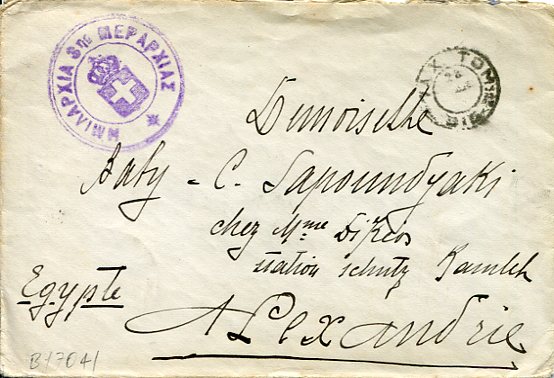 ΗΜΙΛΑΡΧΙΑ 3ης ΜΕΡΑΡΧΙΑΣ
ΤΑΧ ΤΟΜ
Demoiselle
Baby - C. Sapoundjaki
chez Mme Dikeos
station schutz Ramleh
Egypte
Alexandrie
B/7041